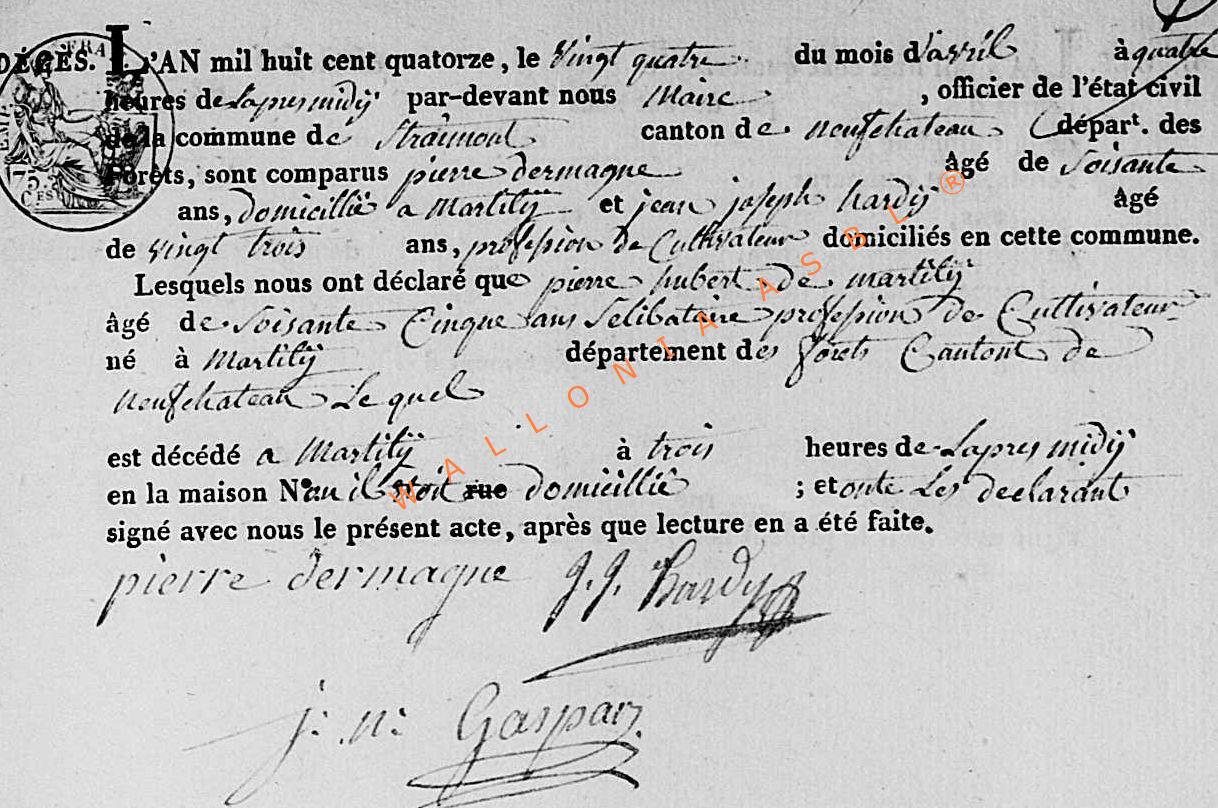 DÉCÈS. L'AN mil huit cent quatorze, le vingt quatre du mois d'avril à quatre
heures de Lapres midij par-devant nous Maire , officier de l'état civil
de la commune de Straimont canton de neufchateau départ. des
Forêts, sont comparus pierre dermagne âgé de Soisante
ans, domicillié a Martilij et jean joseph hardij âgé
de vingt trois ans, profession de Cultivateur domiciliés en cette commune.
Lesquels nous ont déclaré que pierre hubert de martilij
âgé de Soisante Cinque ans Selibataire profession de Cultivateur
né à Martilij département des forets Cantont de
neufchateau Le quel
est décédé a Martilij à trois heures de Lapres midij
en la maison N° au il etoit rue domicillié ; et onte Les declarant
signé avec nous le présent acte, après que lecture en a été faite.
pierre dermagne J. J. Hardy
j: n: Gaspar
WALLONIA ASBL ®